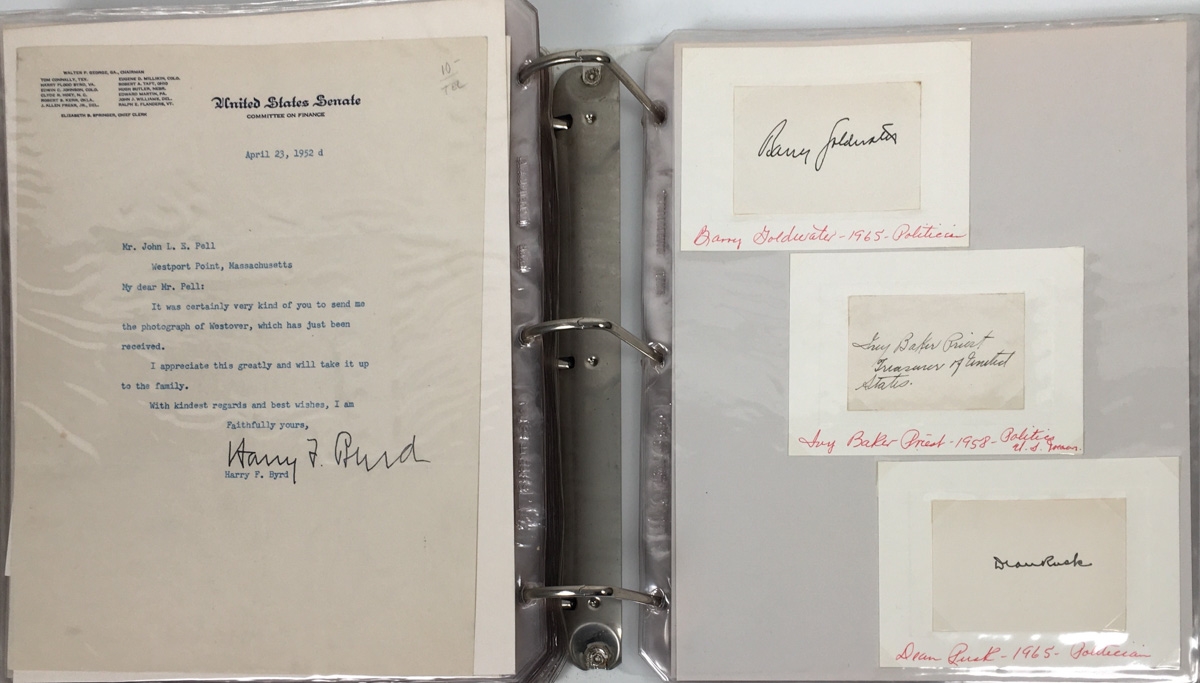 WALTER F. GEORGE, GA., CHAIRMAN
TOM CONNALLY, TEX. EUGENE D. MILLIKIN, COLO.
HARRY FLOOD BYRD, VA. ROBERT A. TAFT, OHIO
EDWIN C. JOHNSON, COLO. HUGH BUTLER, NEBR.
CLYDE R. HOEY, N. C. EDWARD MARTIN, PA.
ROBERT S. KERR, OKLA. JOHN J. WILLIAMS, DEL.
J. ALLEN FREAR, JR., DEL. RALPH E. FLANDERS, VT.
ELIZABETH B. SPRINGER, CHIEF CLERK
United States Senate
COMMITTEE ON FINANCE
10-
April 23, 1952 d
Mr. John L. E. Pell
Westport Point, Massachusetts
My dear Mr. Pell:
It was certainly very kind of you to send me
the photograph of Westover, which has just been
received.
I appreciate this greatly and will take it up
to the family.
With kindest regards and best wishes, I am
Faithfully yours,
Harry F. Byrd
Harry F. Byrd
Barry Goldwater
Barry Goldwater - 1965 - Politician
Ivy Baker Priest
Treasurer of United
States.
Ivy Baker Priest - 1958 - Politics
U. S. Treas.
Dean Rusk
Dean Rusk - 1965 - Politician